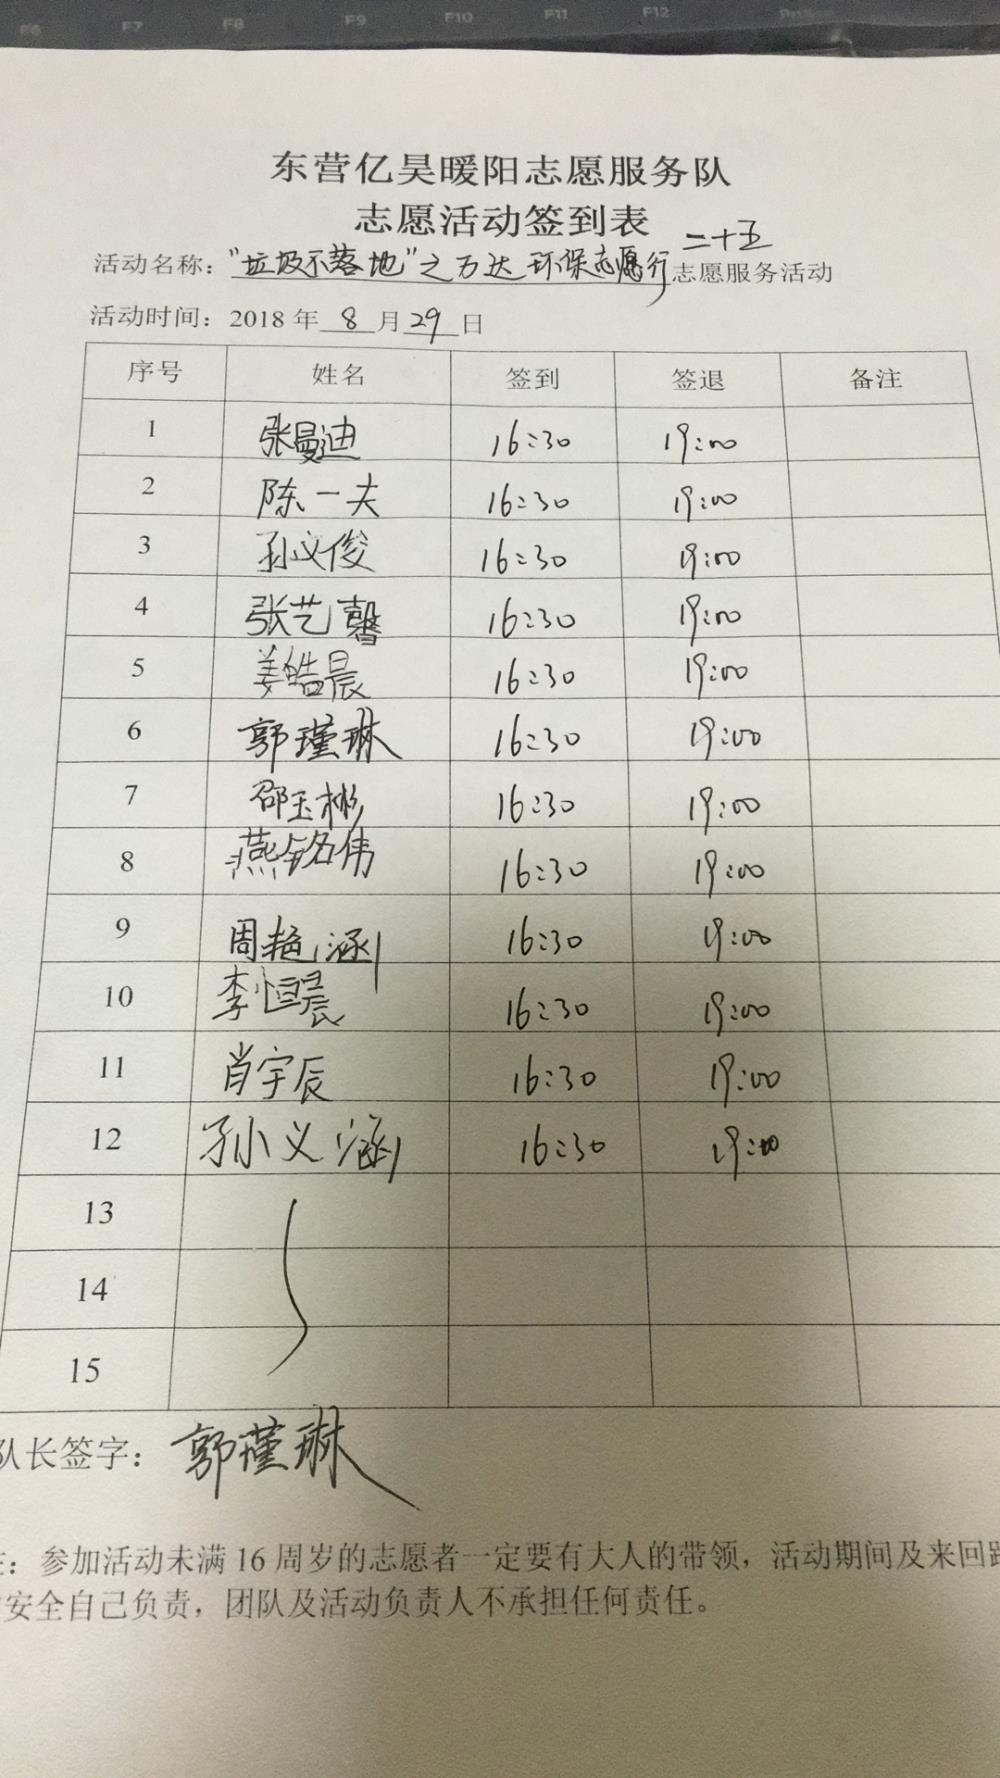 F6 F7 F8 F9 F10 F11 F12
东营亿昊暖阳志愿服务队
志愿活动签到表
二十五
活动名称："垃圾不落地"之万达环保志愿行志愿服务活动
活动时间：2018年8月29日
序号 姓名 签到 签退 备注
1 张曼迪 16:30 19:00
2 陈一夫 16:30 19:00
3 孙义俊 16:30 19:00
4 张艺馨 16:30 19:00
5 姜皓晨 16:30 19:00
6 郭瑾琳 16:30 19:00
7 邵玉彬 16:30 19:00
8 燕铭伟 16:30 19:00
9 周艳涵 16:30 19:00
10 李恒晨 16:30 19:00
11 肖宇辰 16:30 19:00
12 孙义涵 16:30 19:00
13
14
15
队长签字：郭瑾琳
注：参加活动未满16周岁的志愿者一定要有大人的带领，活动期间及来回路
安全自己负责，团队及活动负责人不承担任何责任。